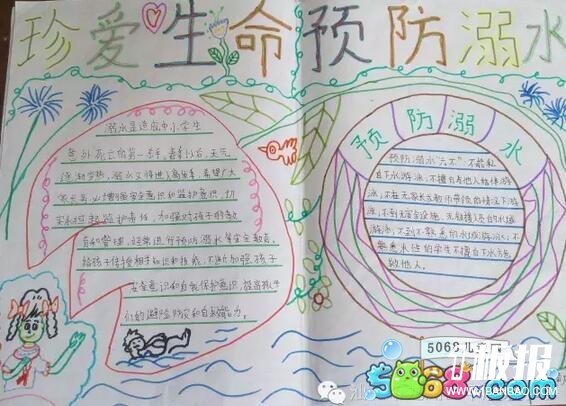 珍爱生命 预防溺水
溺水是造成中小学生
意外死亡的第一杀手。春季以后,天气
逐渐变热,溺水又将进入高发季。希望广大
家长务必增强安全意识和监护意识,切
实承担起监护责任,加强对孩子的教
育和管理,经常进行预防溺水等安全教育,
给孩子传授相关知识和技能,不断加强孩子
安全意识和自我保护意识,提高孩子
们的避险防灾和自救能力。
预防溺水
预防溺水“六不”:不能私
自下水游泳;不擅自与他人结伴游
泳;不在无家长或教师带领的情况下游
泳;不到无安全设施、无救援人员的水域
游泳;不到不熟悉的水域游泳;不
熟悉水性的学生不擅自下水方施
救他人。
5068儿童网
5068.com
板报
WWW.JBANBAO.COM